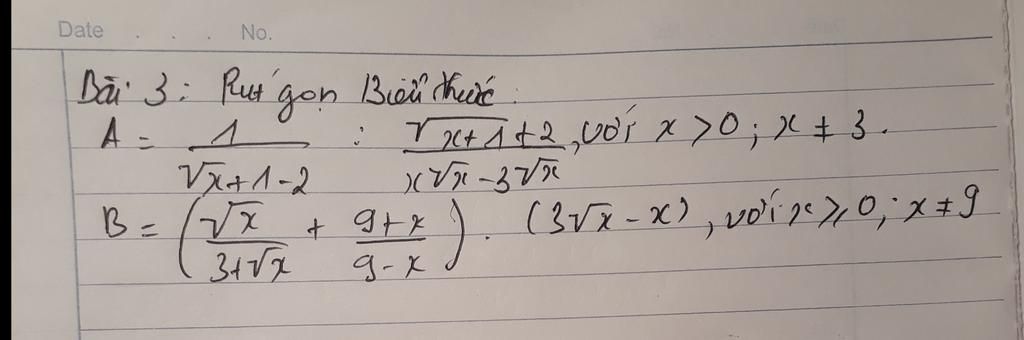 Date . . . No.
Bài 3: Rut gọn Biểu thức.
A = 1/(√x+1-2) : (√(x+1)+2)/(x√x-3√x), với x > 0; x ≠ 3.
B = (√x/(3+√x) + (9+x)/(9-x)) . (3√x - x), với x ≥ 0; x ≠ 9